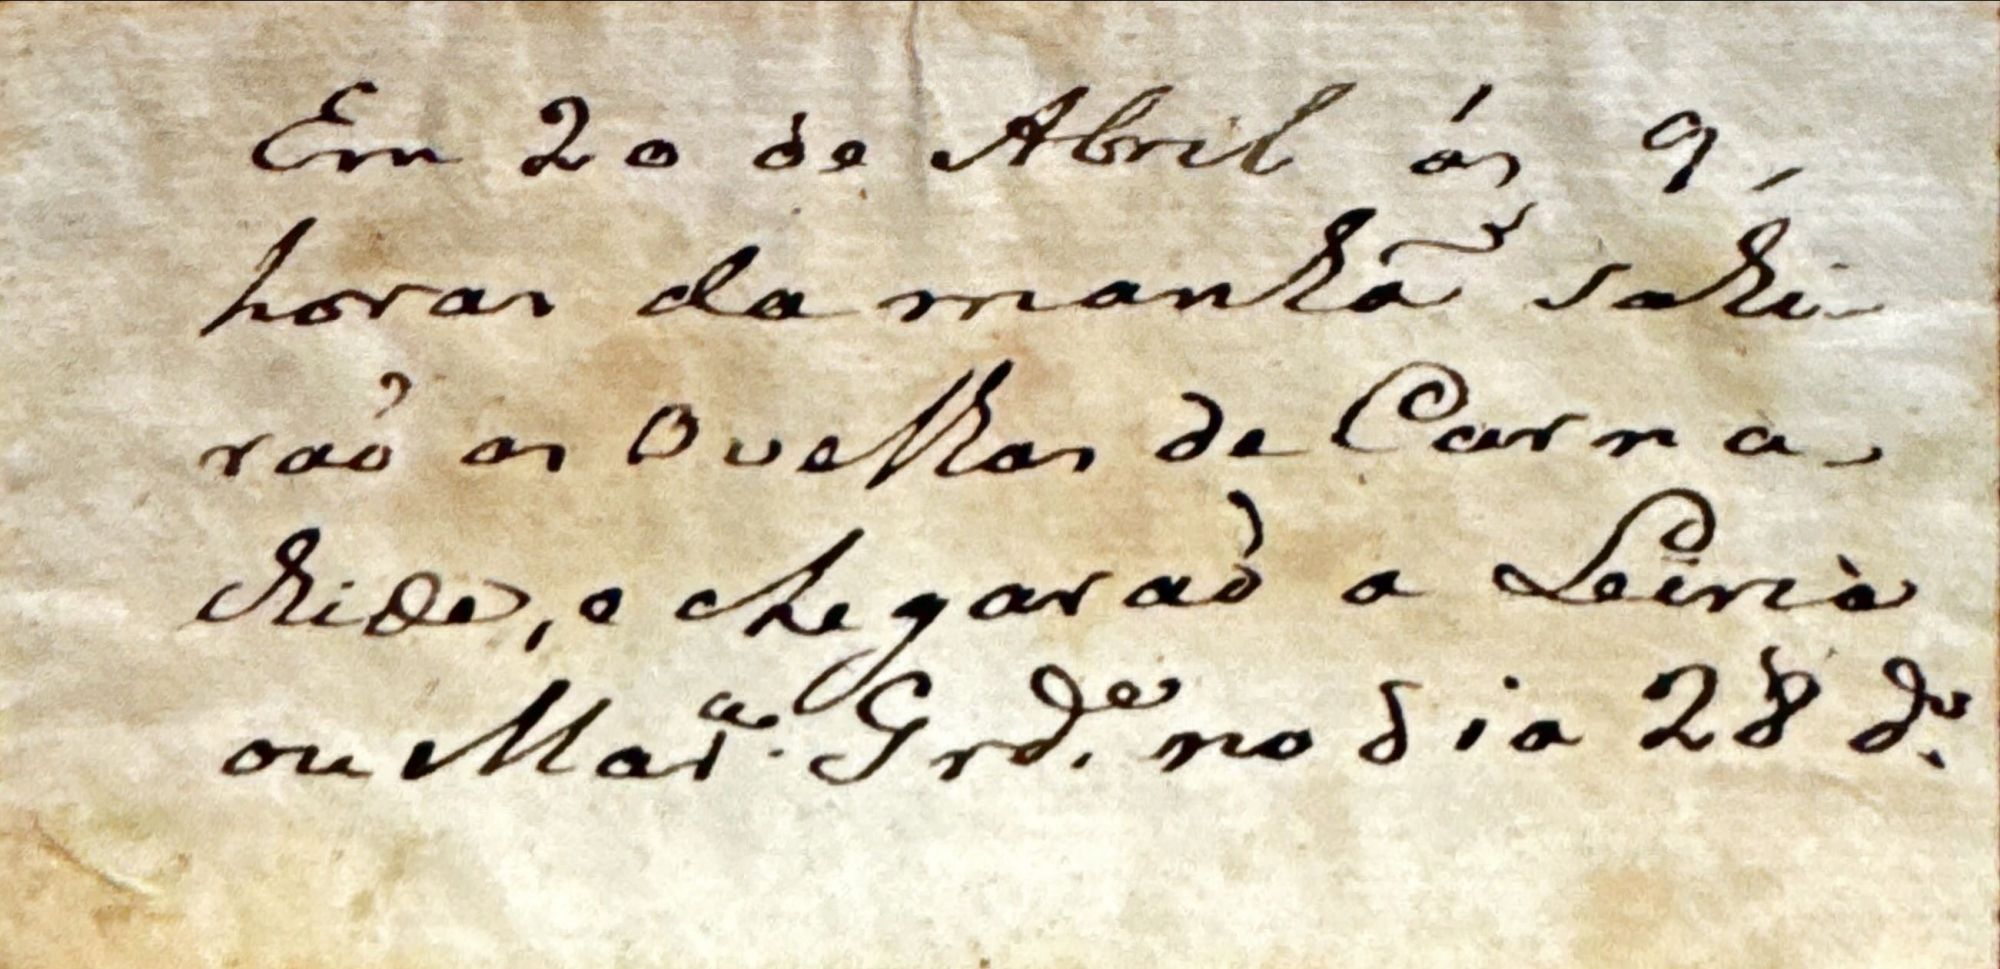 Em 20 de Abril ás 9,
horas da manhã sahi-
raõ as Ovelhas de Carna-
chide, e chegaraõ a Leiria
ou Mar.ª Grd.e no dia 28 d.o